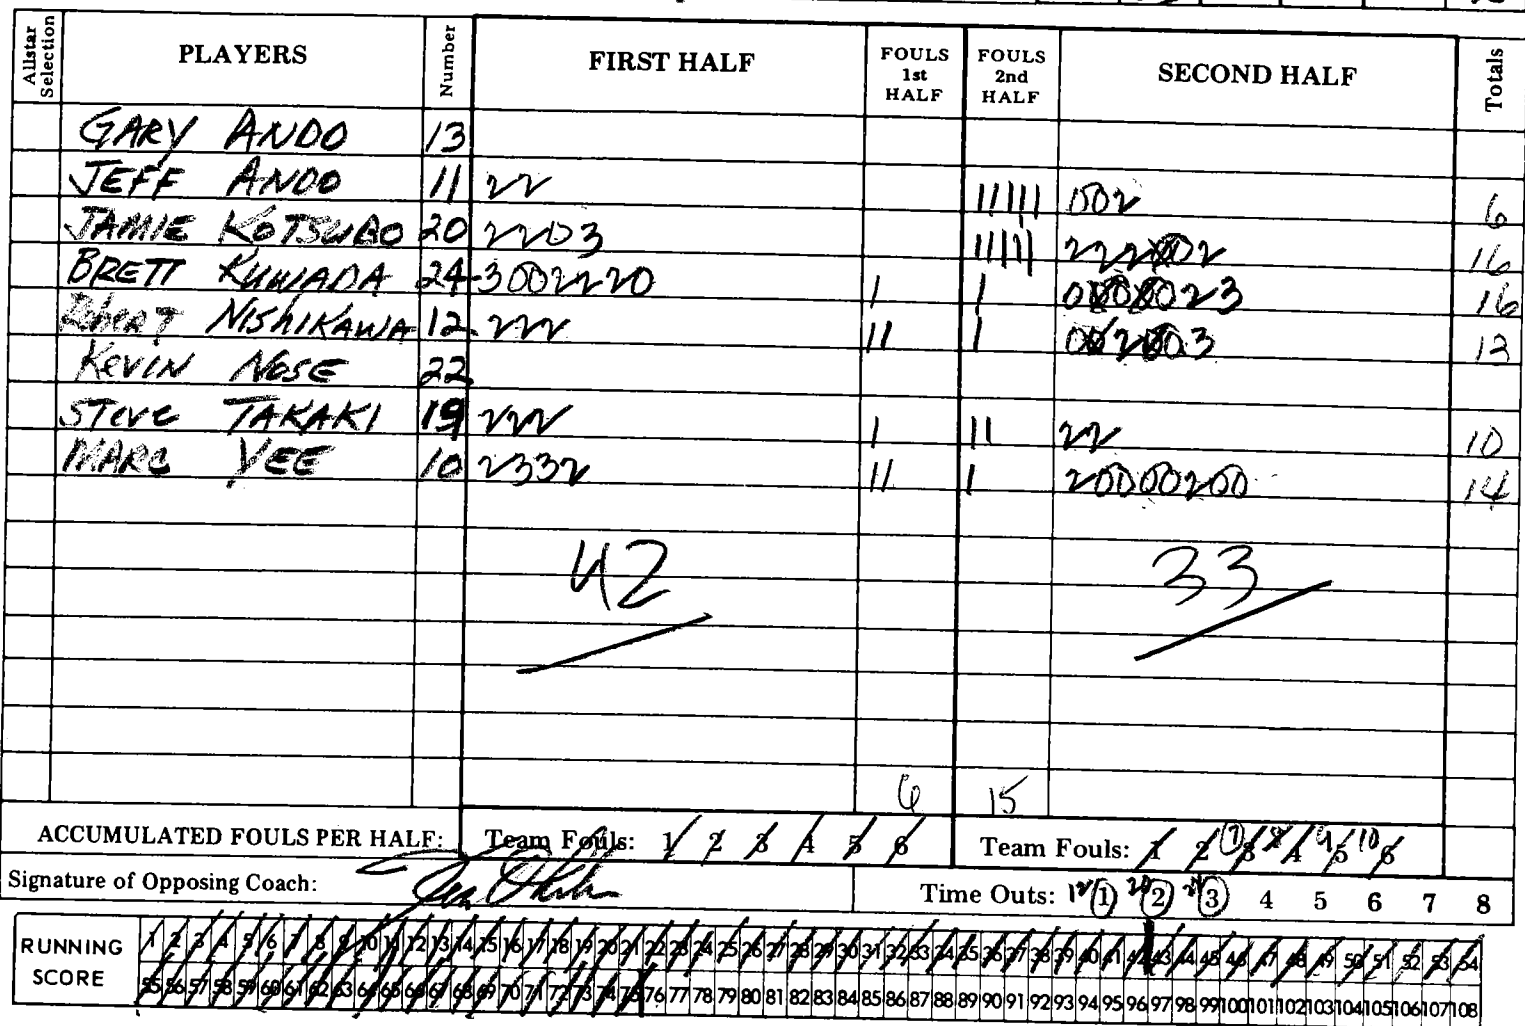 Allstar Selection PLAYERS Number FIRST HALF FOULS 1st HALF FOULS 2nd HALF SECOND HALF Totals
GARY ANDO 13
JEFF ANDO 11 22 11111 002 6
JAMIE KOTSUBO 20 2203 11111 16
BRETT KUWADA 24 3002220 1 1 16
NISHIKAWA 12 222 11 1 13
KEVIN NOSE 22
STEVE TAKAKI 19 222 1 11 22 10
MARC YEE 10 2332 11 1 20000200 14
42 33
6 15
ACCUMULATED FOULS PER HALF: Team Fouls: 1 2 3 4 5 6 Team Fouls: 1 2 7 3 8 4 9 5 10 6
Signature of Opposing Coach: Time Outs: 1 2 3 4 5 6 7 8
RUNNING SCORE
1 2 3 4 5 6 7 8 9 10 11 12 13 14 15 16 17 18 19 20 21 22 23 24 25 26 27 28 29 30 31 32 33 34 35 36 37 38 39 40 41 42 43 44 45 46 47 48 49 50 51 52 53 54
55 56 57 58 59 60 61 62 63 64 65 66 67 68 69 70 71 72 73 74 75 76 77 78 79 80 81 82 83 84 85 86 87 88 89 90 91 92 93 94 95 96 97 98 99 100 101 102 103 104 105 106 107 108